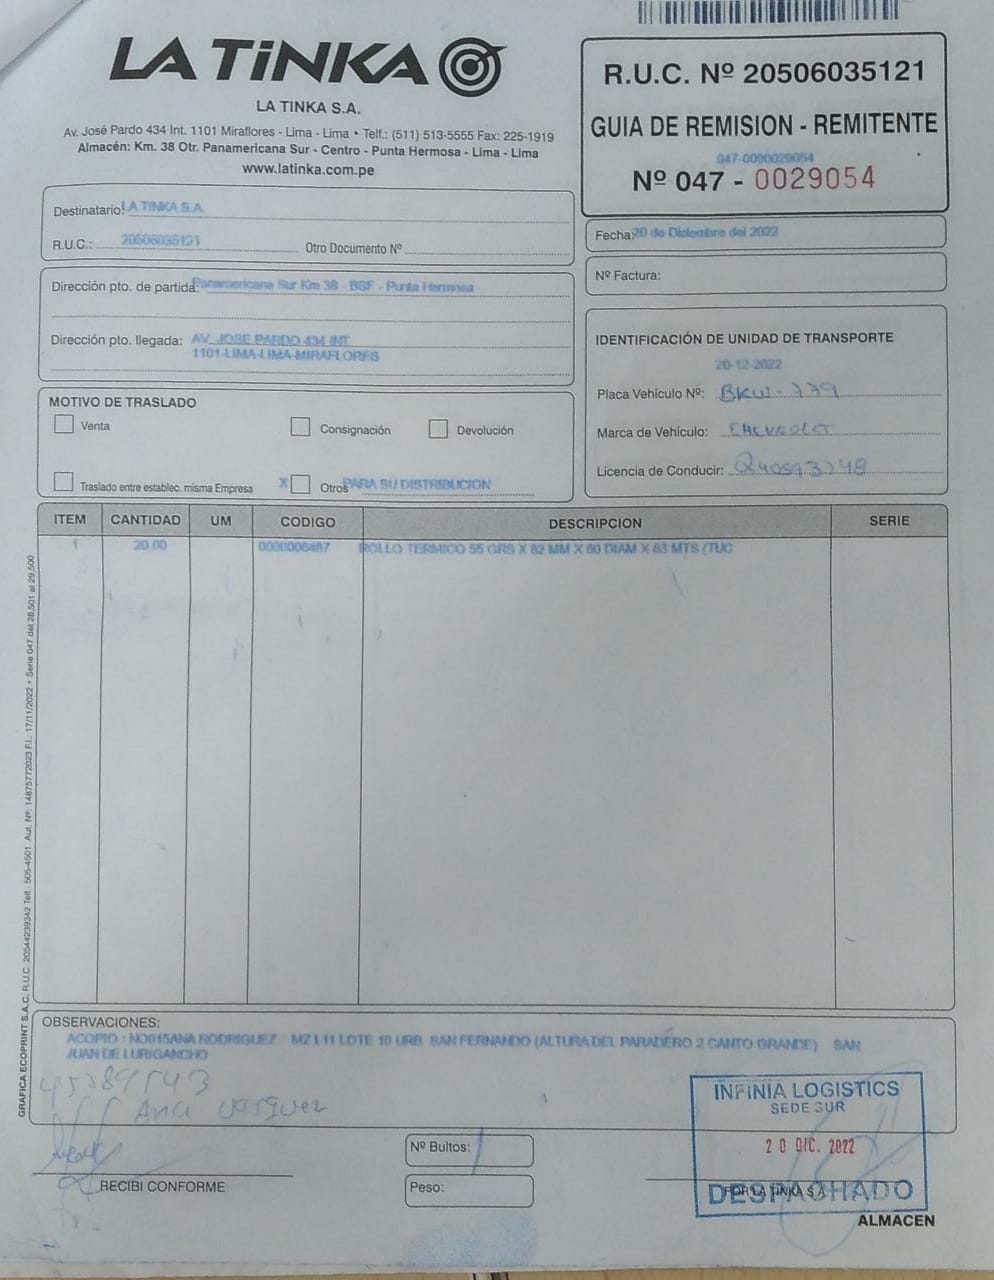 LA TiNKA
LA TINKA S.A.
Av. José Pardo 434 Int. 1101 Miraflores - Lima - Lima • Telf.: (511) 513-5555 Fax: 225-1919
Almacén: Km. 38 Otr. Panamericana Sur - Centro - Punta Hermosa - Lima - Lima
www.latinka.com.pe
R.U.C. Nº 20506035121
GUIA DE REMISION - REMITENTE
047-0000029054
Nº 047 - 0029054
Destinatario: LA TINKA S.A.
R.U.C.: 20506035121 Otro Documento Nº
Fecha: 20 de Diciembre del 2022
Nº Factura:
Dirección pto. de partida: Panamericana Sur Km 38 - BSF - Punta Hermosa
Dirección pto. llegada: AV. JOSE PARDO 434 INT.
1101-LIMA-LIMA-MIRAFLORES
IDENTIFICACIÓN DE UNIDAD DE TRANSPORTE
20-12-2022
Placa Vehículo Nº: BKW-779
Marca de Vehículo: CHEVROLET
Licencia de Conducir: Q40593748
MOTIVO DE TRASLADO
Venta
Consignación
Devolución
Traslado entre establec. misma Empresa
X Otros PARA SU DISTRIBUCION
ITEM CANTIDAD UM CODIGO DESCRIPCION SERIE
1 20.00 0000006487 ROLLO TERMICO 55 GRS X 82 MM X 80 DIAM X 83 MTS (TUC
GRAFICA ECOPRINT S.A.C. R.U.C. 20544239342 Telf.: 505-4501 Aut. Nº: 14875772023 F.I.: 17/11/2022 • Serie 047 del 28,501 al 29,500
OBSERVACIONES:
ACOPIO : NO015ANA RODRIGUEZ MZ L11 LOTE 10 URB SAN FERNANDO (ALTURA DEL PARADERO 2 CANTO GRANDE) SAN
JUAN DE LURIGANCHO
Ana Vasquez
RECIBI CONFORME
Nº Bultos: 1
Peso:
INFINIA LOGISTICS
SEDE SUR
20 DIC. 2022
DESPACHADO
POR LA TINKA S.A.
ALMACEN